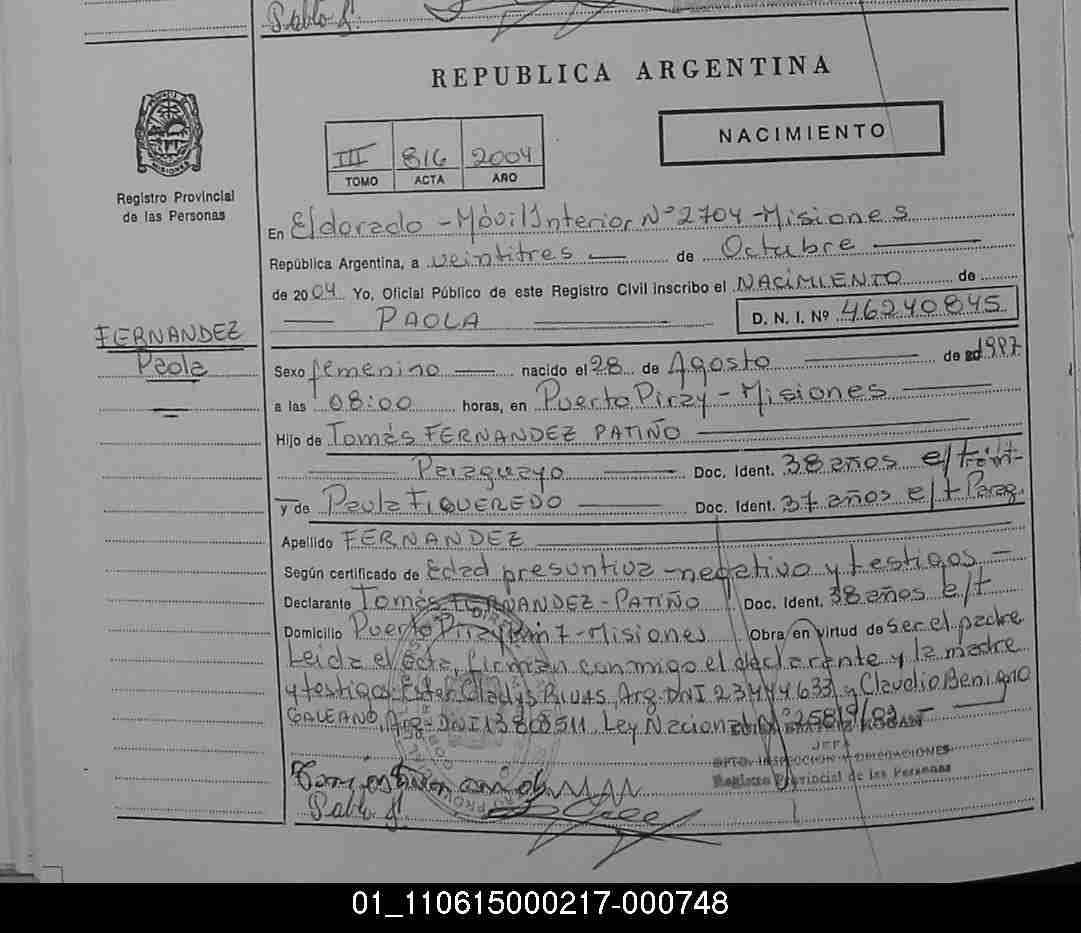 Pablo S.
REPUBLICA ARGENTINA
NACIMIENTO
III 816 2004
TOMO ACTA AÑO
Registro Provincial
de las Personas
En Eldorado - Móvil Interior Nº 2704 - Misiones
República Argentina, a veintitres de Octubre
de 2004 Yo, Oficial Público de este Registro Civil inscribo el NACIMIENTO de
PAOLA D. N. I. Nº 46240845
FERNANDEZ
Paola
Sexo femenino nacido el 28 de Agosto de 1997
a las 08:00 horas, en Puerto Piray - Misiones
Hijo de Tomás FERNANDEZ PATIÑO
Paraguayo Doc. Ident. 38 años e/trámt-
y de Paula FIQUEREDO Doc. Ident. 37 años e/t Parag.
Apellido FERNANDEZ
Según certificado de edad presuntiva - negativo y testigos -
Declarante Tomás FERNANDEZ - PATIÑO Doc. Ident. 38 años e/t
Domicilio Puerto Piray km 7 - Misiones Obra en virtud de ser el padre
Leida el acta, firman conmigo el declarante y la madre
y testigos: Ester Gladys Arg. DNI 23444633 y Claudio Benigno
GALEANO, Arg - DNI 13808511. Ley Nacional Nº 25819/03
JEFA
DPTO. INSPECCION Y DELEGACIONES
Registro Provincial de las Personas
Pablo S.
01_110615000217-000748